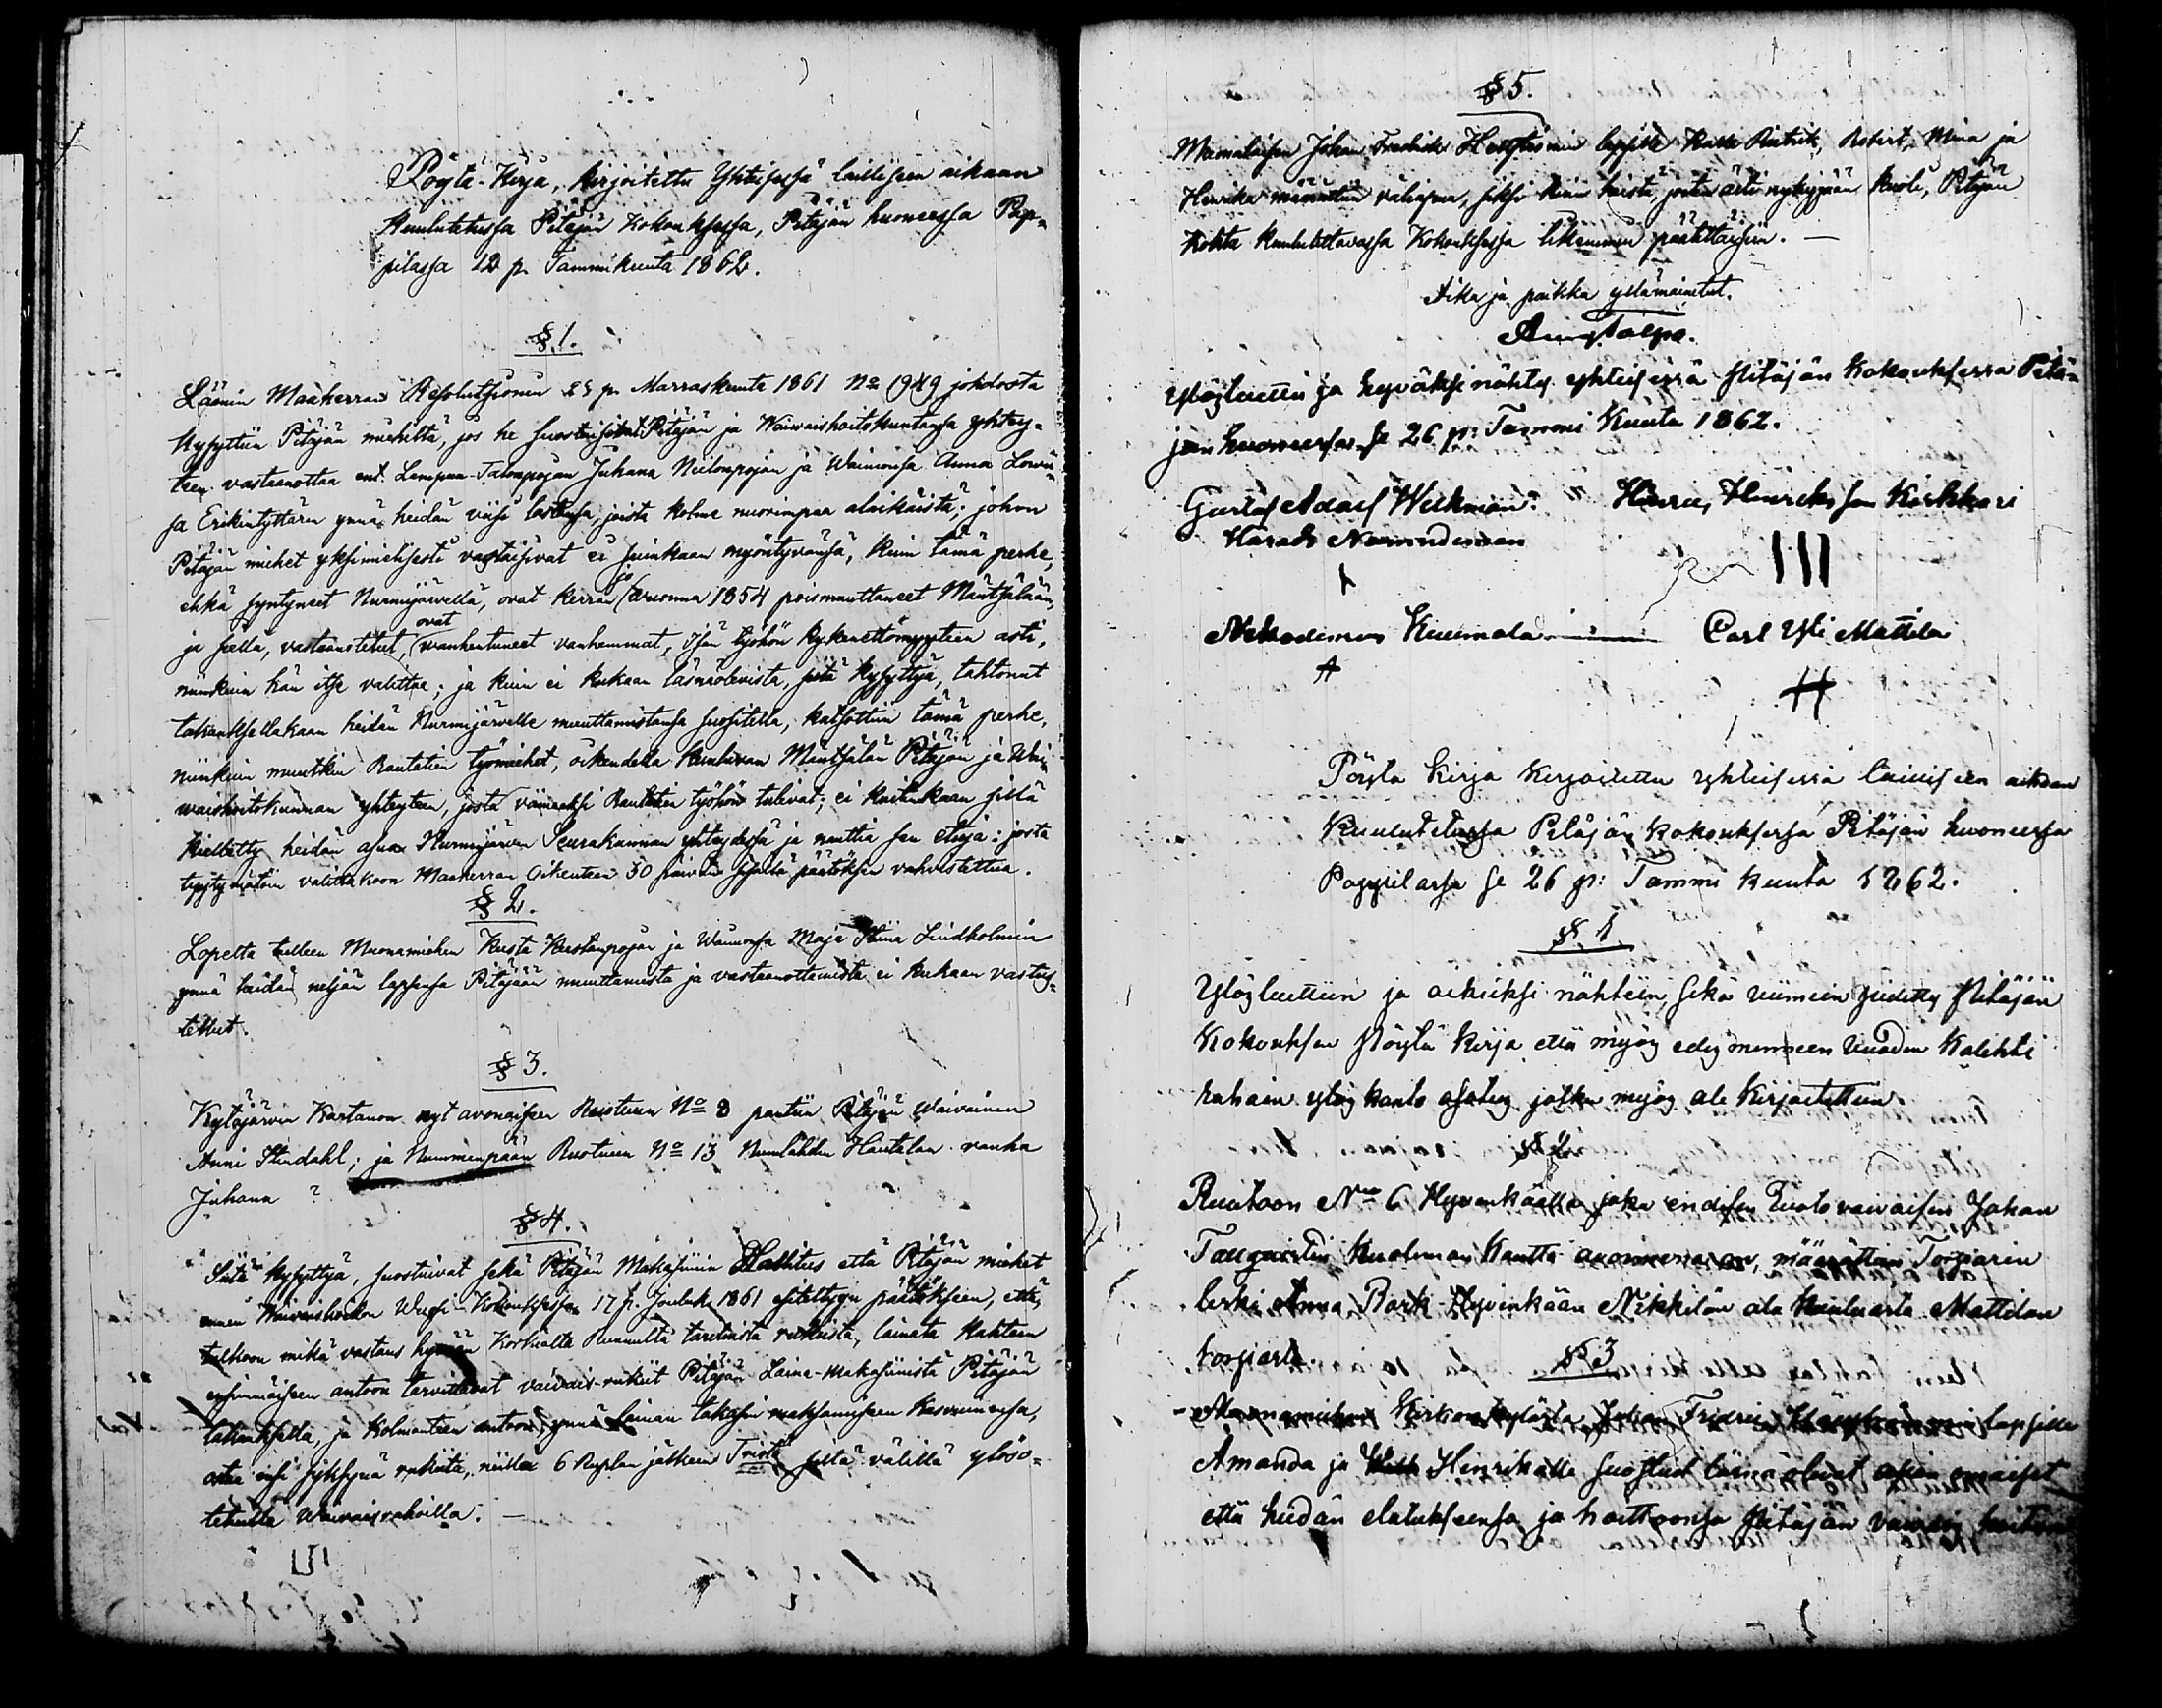 Pöytä-Kirja, kirjoitettu Yhteisessä laillisseen aikaan
Kuulutetussa Pitäjän Kokouksessa, Pitäjän huoneessa Pap-
pilassa 12 p. Tammikuuta 1862.
§ 1.
Läänin Maaherran Resolutsionin 25 p. Marraskuuta 1861 No 1949 johdosta
kysyttiin Pitäjän miehiltä, jos he suostuisivat Pitäjän ja Waiwaishoitokuntansa yhtey-
teen vastaanottaa ent. Lampuri-Talonpojan Juhana Niilonpojan ja Waimonsa Anna Lowii-
sa Erikintyttären ynnä heidän viisi lastansa, joista kolme nuorimpaa alaikäistä; johon
Pitäjän miehet yksimielisesti vastaisivat ei suinkaan myöntyvänsä, kuin tämä perhe,
ehkä syntyneet Nurmijärvellä, ovat kerran jo wuonna 1854 poismuuttaneet Mäntsälään,
ja siellä, vastaanotetut, ovat wanhentuneet vanhemmat, Isän työhön kykenettömyyteen asti,
niinkuin hän itse valittaa; ja kuin ei kukaan läsnäolevista, sitä kysyttyä, tahtonut
takauksellakaan heidän Nurmijärvelle muuttamistansa suositella, katsottiin tämä perhe,
niinkuin muutkin Rautatien työmiehet, oikeudella kuuluvan Mäntsälän Pitäjän ja Wai-
waishoitokunnan yhteyteen, josta viimeksi Rautatien työhön tulevat; ei kuitenkaan sillä
kielletty heidän asua Nurmijärven Seurakunnan yhteydessä ja nauttia sen etuja: josta
tyytymätöin valittakoon Maaherran Oikeuteen 30 päivän sisällä päätöksen vahvistettua.
§ 2.
Lopelta tulleen Muonamiehen Kusta Kustaanpojan ja Waimonsa Maja Stina Lindholmin
ynnä heidän neljän lapsensa Pitäjään muuttamista ja vastaanottamista ei kukaan vastus-
tellut.
§ 3.
Kytäjärven Kartanon nyt avonaiseen Ruotuun No 8 pantiin Pitäjän Waivainen
Anni Stendahl; ja Nummenpään Ruotuun No 13 Numlahden Hautalan vanha
Juhana ?
§ 4.
Sitä kysyttyä, suostuivat sekä Pitäjän Makasiinin Hallitus että Pitäjän miehet
ennen Waivaishoidon Wuosi-Kokouksessa 17 p. Jouluk. 1861 esiteltyyn päätökseen, että,
tulkoon mikä vastaus hyvään Korkialta Kruunulta tarituista rukiista, lainata Kahteen
ensimmäiseen antoon tarvittavat vaivais-rukiit Pitäjän Laina-Makasiinista Pitäjän
takauksella, ja Kolmanteen antoon, ynnä lainan takasin maksamiseen Kasvuinensa,
ostaa ensi syksynä rukiita, niillä 6 Ruplan jälkeen Tristä sillä välillä ylöso-
tetuilla Waivaisrahoilla.
§ 5.
Muonamiehen Johan Fredrik lapsille Kalle Rietrik, Robert, Mina ja
Henrika määrättiin väliajaksi, siksi kuin heistä, joiden äiti nykyjään kuoli, Pitäjän
Kohta kuulutettavassa Kokouksessa likemmin päätettäisiin.
Aika ja paikka yllämainitut.
Ylösluettu ja hyväksi nähty yhteisessä Pitäjän Kokouksessa Pitä-
jän huoneessa se 26 p: Tammi Kuuta 1862.
Gustaf Adolf Weckman Henric Henricksson Kärkkäri
Härads Nämndeman
Nikodemus Kuumola Carl Yli Mattila
Pöytä kirja Kirjoitettu yhteisessä lailliseen aikaan
Kuulutetussa Pitäjän kokouksessa Pitäjän huoneessa
Pappilassa se 26 p: Tammi kuuta 1862.
§ 1
Ylösluettiin ja oikiaksi nähtiin, sekä viimein pidetty Pitäjän
Kokouksen Pöytä kirja että myös edesmenneen vuoden Kolehti
rahain ylös kanto asetus jotka myös ale kirjoitettiin.
§ 2
Ruotoon No 6 Hyvinkäällä joka endisen Ruoto vaivaisen Johan
Tangvistin kuoleman kautta avoimena on, määrättiin Torparin
leski Anna Bork Hyvinkään Nikkilän ala kuuluasta Mattilan
torpiasta.
§ 3
Muonamiehen Kirkonkylästä Johan Fridric lapsille
Amanda ja Henrikalle suostuit läsnä olevat asian omaiset
että heidän elatukseensa ja hoittoonsa Pitäjän vaivas hoiton